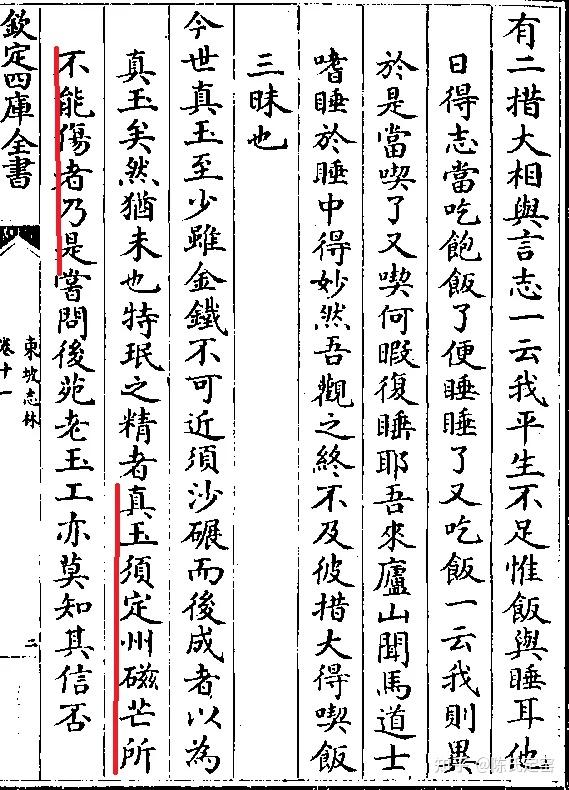 有二措大相與言志一云我平生不足惟飯與睡耳他
日得志當吃飽飯了便睡睡了又吃飯一云我則異
於是當喫了又喫何暇復睡耶吾來廬山聞馬道士
嗜睡於睡中得妙然吾觀之終不及彼措大得喫飯
三昧也
今世真玉至少雖金鐵不可近須沙碾而後成者以為
真玉矣然猶未也特珉之精者真玉須定州磁芒所
不能傷者乃是嘗問後苑老玉工亦莫知其信否
欽定四庫全書
東坡志林
卷十一
知乎 @陈氏定窑